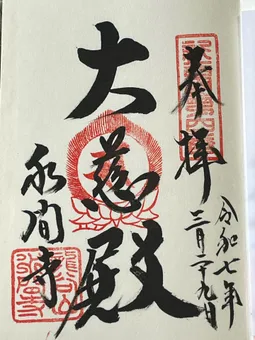 奉拝
令和七年
三月二十九日
大慈殿
永閑寺